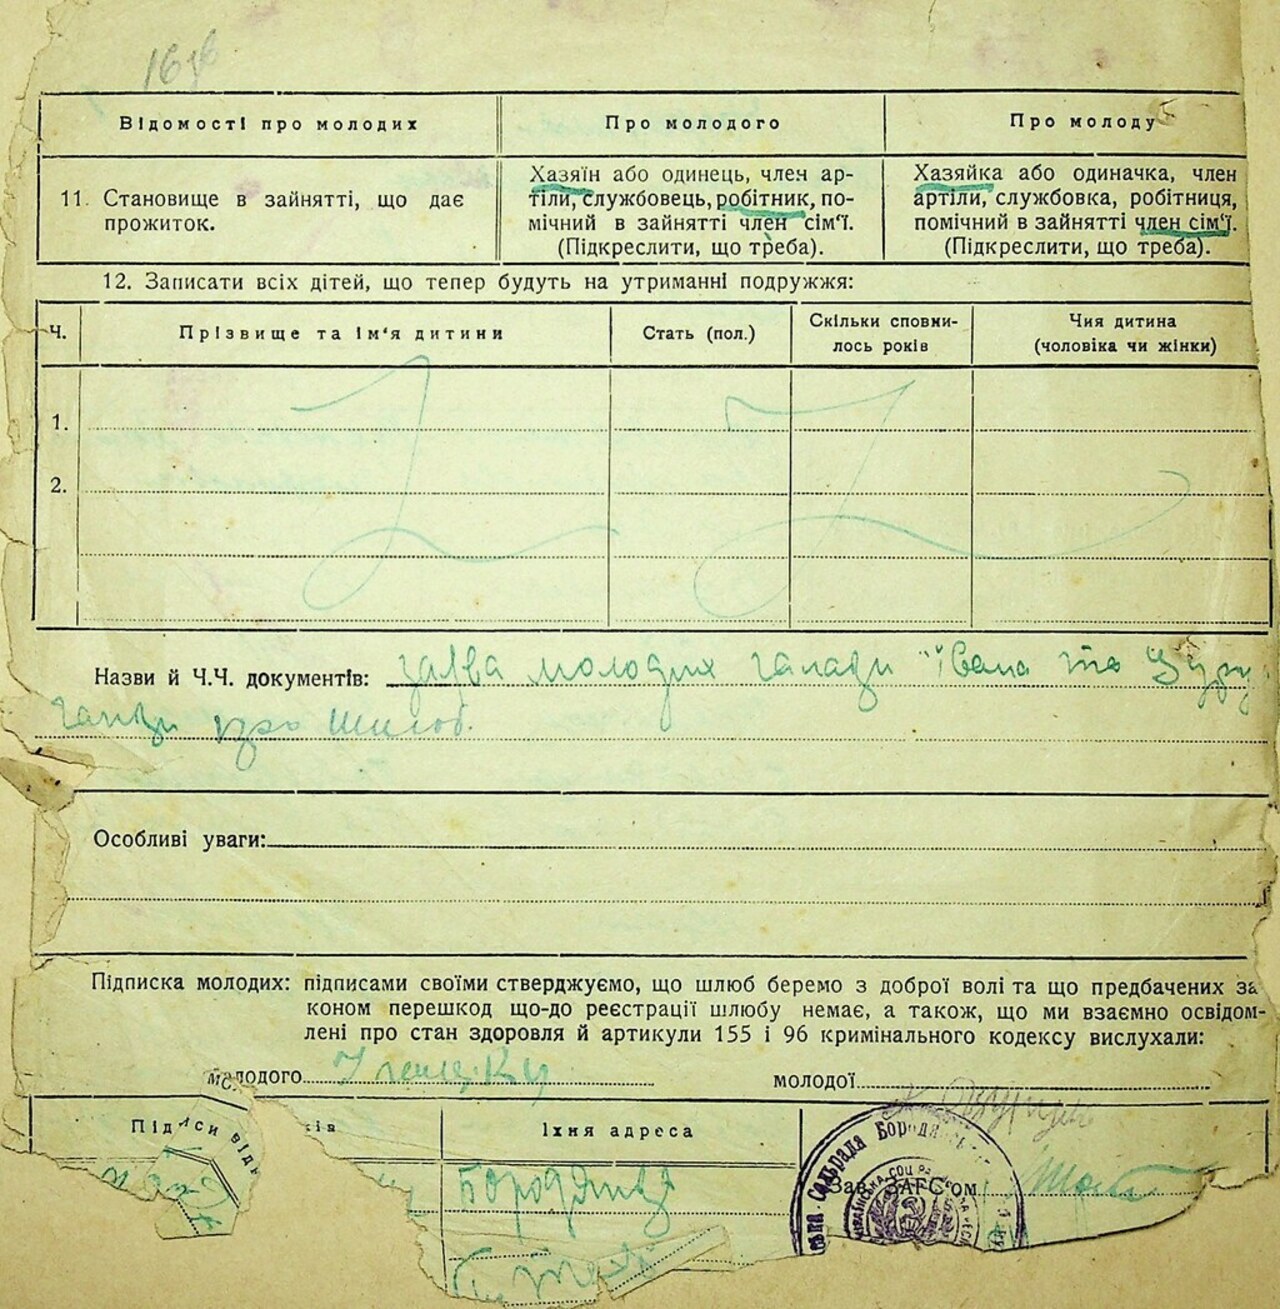 16
Відомості про молодих
Про молодого
Про молоду
11. Становище в зайнятті, що дає
прожиток.
Хазяїн або одинець, член ар-
тіли, службовець, робітник, по-
мічний в зайнятті член сім'ї.
(Підкреслити, що треба).
Хазяйка або одиначка, член
артіли, службовка, робітниця,
помічний в зайнятті член сім'ї.
(Підкреслити, що треба).
12. Записати всіх дітей, що тепер будуть на утриманні подружжя:
Ч.
Прізвище та ім'я дитини
Стать (пол.)
Скільки сповни-
лось років
Чия дитина
(чоловіка чи жінки)
1.
2.
Назви й Ч.Ч. документів: заява молодих Івана та
про шлюб.
Особливі уваги:
Підписка молодих: підписами своїми стверджуємо, що шлюб беремо з доброї волі та що предбачених за
коном перешкод що-до реєстрації шлюбу немає, а також, що ми взаємно освідом-
лені про стан здоровля й артикули 155 і 96 кримінального кодексу вислухали:
молодого
молодої
Підписи
Їхня адреса
Зав. ЗАГС'ом
Сільрада